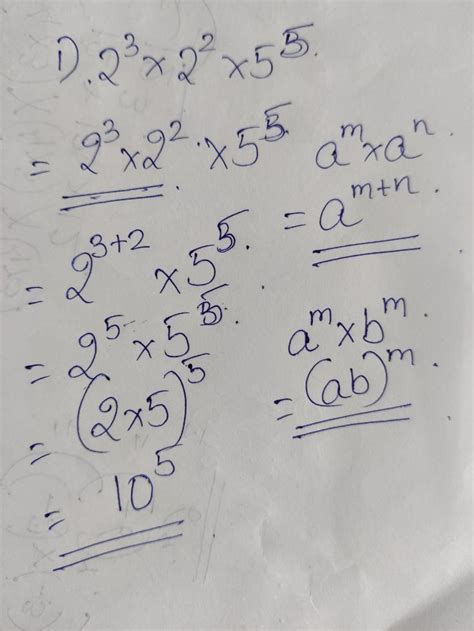 1). 2³ × 2² × 5⁵.
= 2³ × 2² × 5⁵
aᵐ × aⁿ.
= aᵐ⁺ⁿ.
= 2³⁺² × 5⁵.
= 2⁵ × 5⁵.
aᵐ × bᵐ.
= (ab)ᵐ.
= (2×5)⁵
= 10⁵